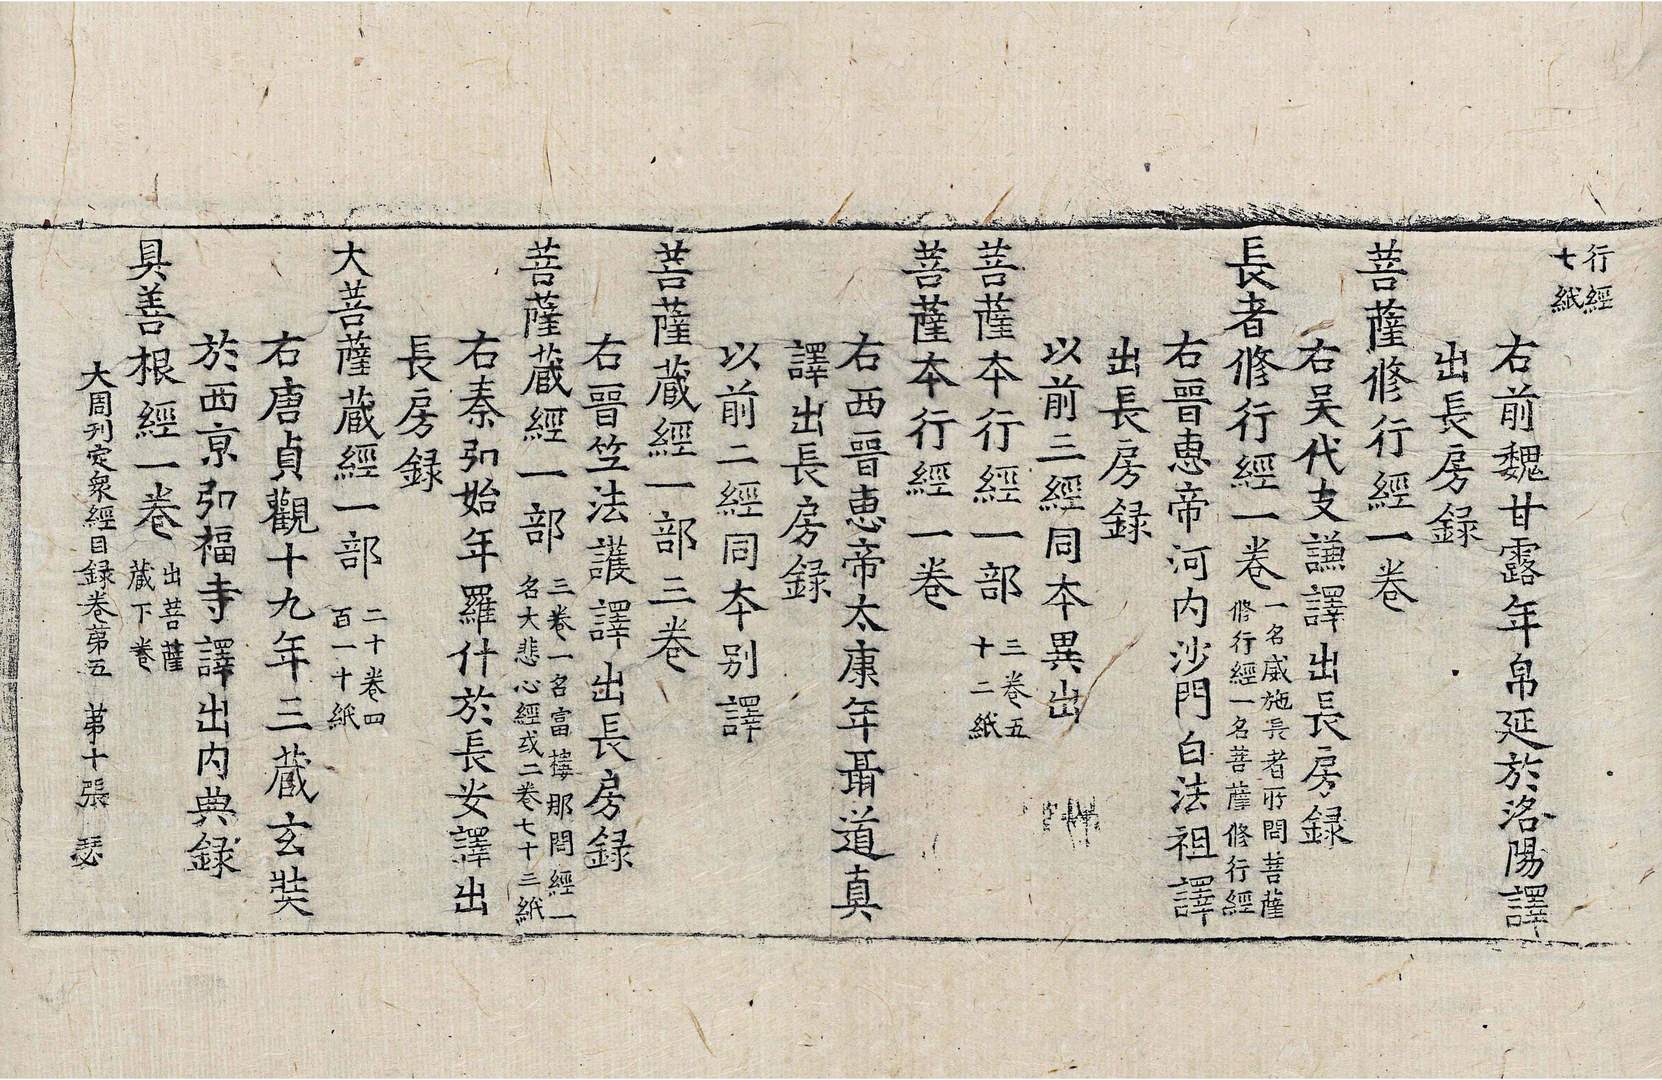 行經
七紙
右前魏甘露年帛延於洛陽譯
出長房録
菩薩修行經一卷
右吴代支謙譯出長房録
長者修行經一卷 一名威施長者所問菩薩
修行經一名菩薩修行經
右晉惠帝河内沙門白法祖譯
出長房録
以前三經同本異出
菩薩本行經一部 三卷五
十二紙
菩薩本行經一卷
右西晉惠帝太康年聶道真
譯出長房録
以前二經同本别譯
菩薩蔵經一部三卷
右晉笠法護譯出長房録
菩薩蔵經一部 三卷一名富樓那問經一
名大悲心經或二卷七十三紙
右秦弘始年羅什於長安譯出
長房録
大菩薩蔵經一部 二十卷四
百一十紙
右唐貞觀十九年三蔵玄奘
於西京弘福寺譯出内典録
具善根經一卷 出菩薩
蔵下卷
大周刊定衆經目録卷第五 第十張 瑟